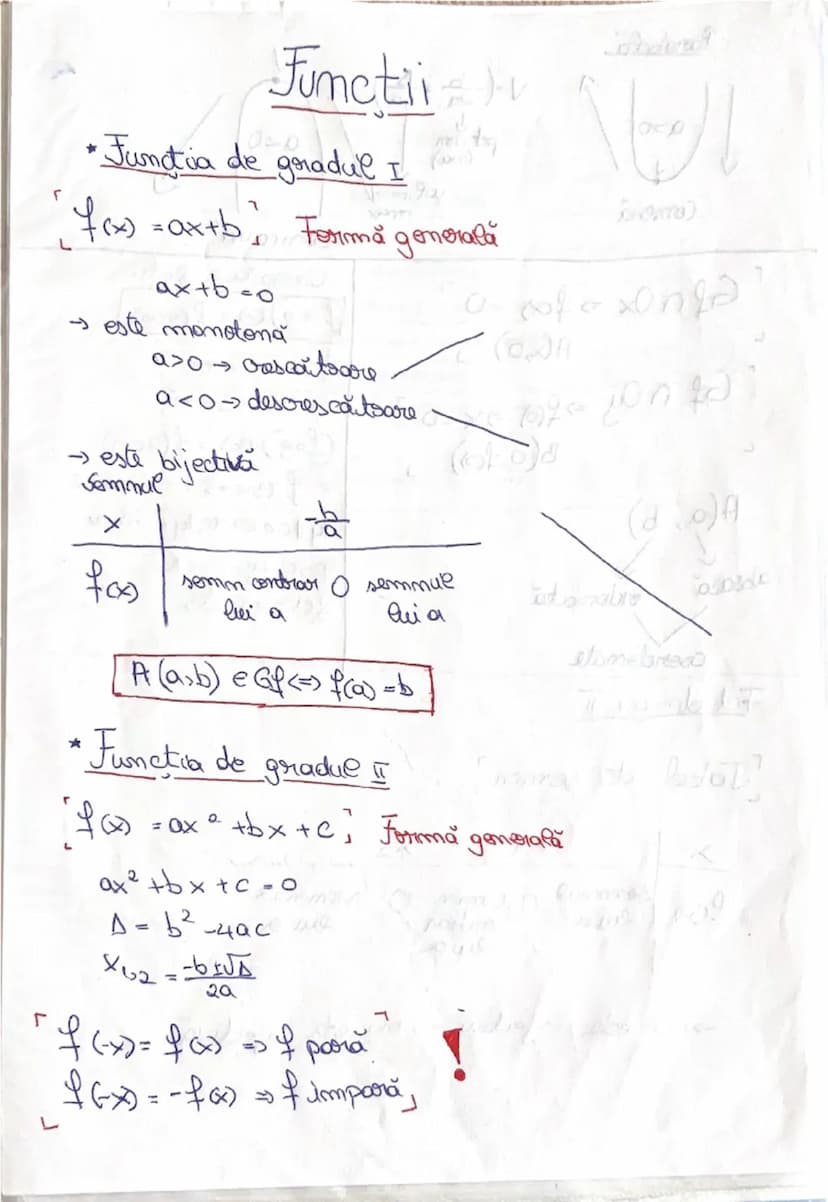 Funcții
* Funcția de gradul I
f(x) = ax+b Formă generală
ax+b=0
→ este monotonă
a>0 → crescătoare
a<0 → descrescătoare
→ este bijectivă
Semnul
x -b/a
f(x) semn contrar 0 semnul
lui a lui a
A(a,b) ∈ Gf <=> f(a) = b
* Funcția de gradul II
f(x) = ax² + bx + c; Formă generală
ax² + bx + c = 0
Δ = b² - 4ac
x₁,₂ = -b±√Δ/2a
f(-x) = f(x) => f pară
!
f(-x) = -f(x) => f impară